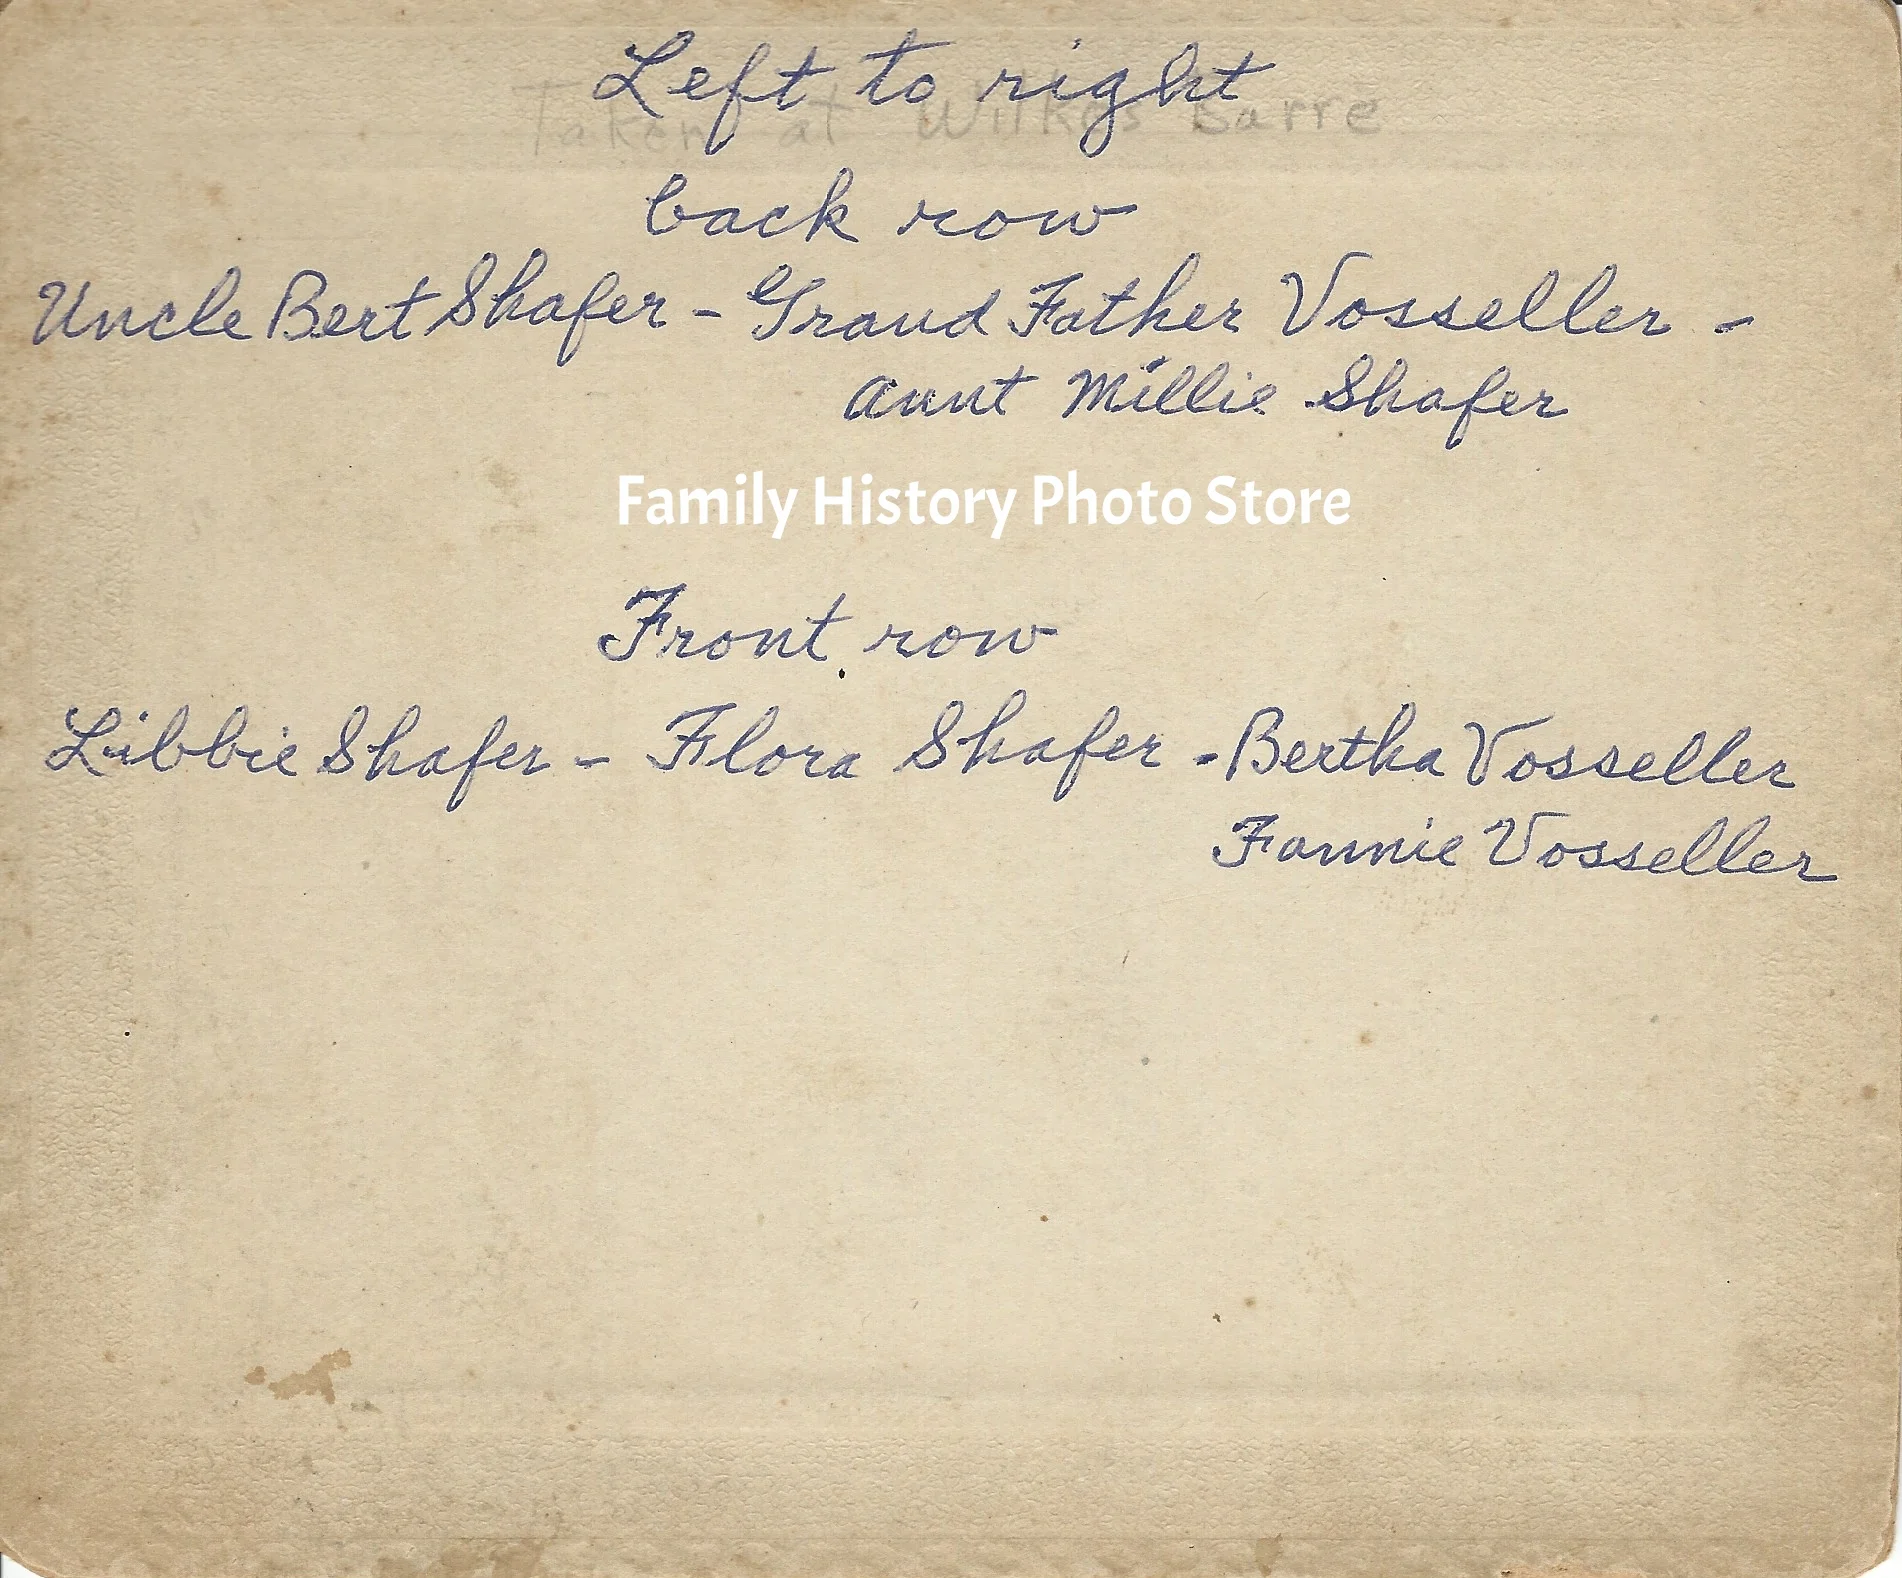 Left to right
Taken at Wilkes Barre
back row
Uncle Bert Shafer - Grand Father Vosseller -
Aunt Millie Shafer
Family History Photo Store
Front row
Libbie Shafer - Flora Shafer - Bertha Vosseller
Fannie Vosseller